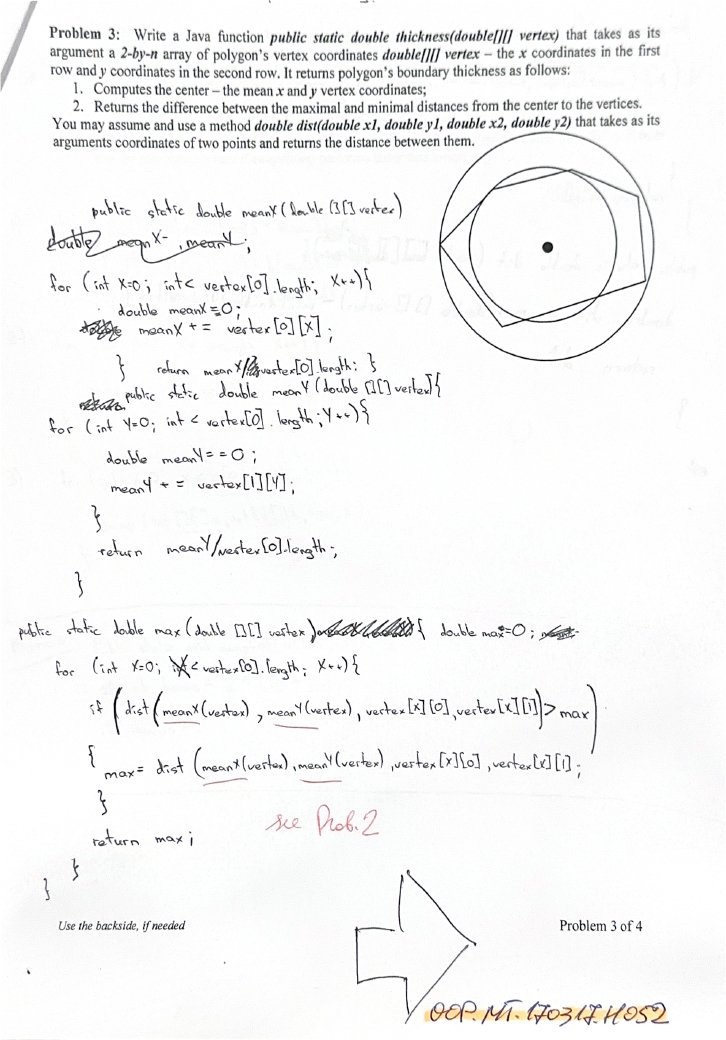 Problem 3: Write a Java function public static double thickness(double[][] vertex) that takes as its
argument a 2-by-n array of polygon's vertex coordinates double[][] vertex – the x coordinates in the first
row and y coordinates in the second row. It returns polygon's boundary thickness as follows:
1. Computes the center – the mean x and y vertex coordinates;
2. Returns the difference between the maximal and minimal distances from the center to the vertices.
You may assume and use a method double dist(double x1, double y1, double x2, double y2) that takes as its
arguments coordinates of two points and returns the distance between them.
public static double meanX (double [][] vertex)
double meanX , meanY;
for (int X=0; int < vertex[0].length; X++){
double meanX=0;
meanX += vertex[0][X];
} return meanX/vertex[0].length; }
public static double meanY (double [][] vertex){
for (int Y=0; int < vertex[0].length; Y++){
double meanY==0;
meanY += vertex[1][Y];
}
return meanY/vertex[0].length;
}
public static double max (double [][] vertex) { double max=0;
for (int X=0; X< vertex[0].length; X++){
if (dist(meanX(vertex), meanY(vertex), vertex[x][0], vertex[x][1])> max)
{
max= dist (meanX(vertex), meanY(vertex), vertex[x][0], vertex[x][1];
}
see Prob. 2
return max;
}
}
Use the backside, if needed
Problem 3 of 4
OOP.MT.170317.H052